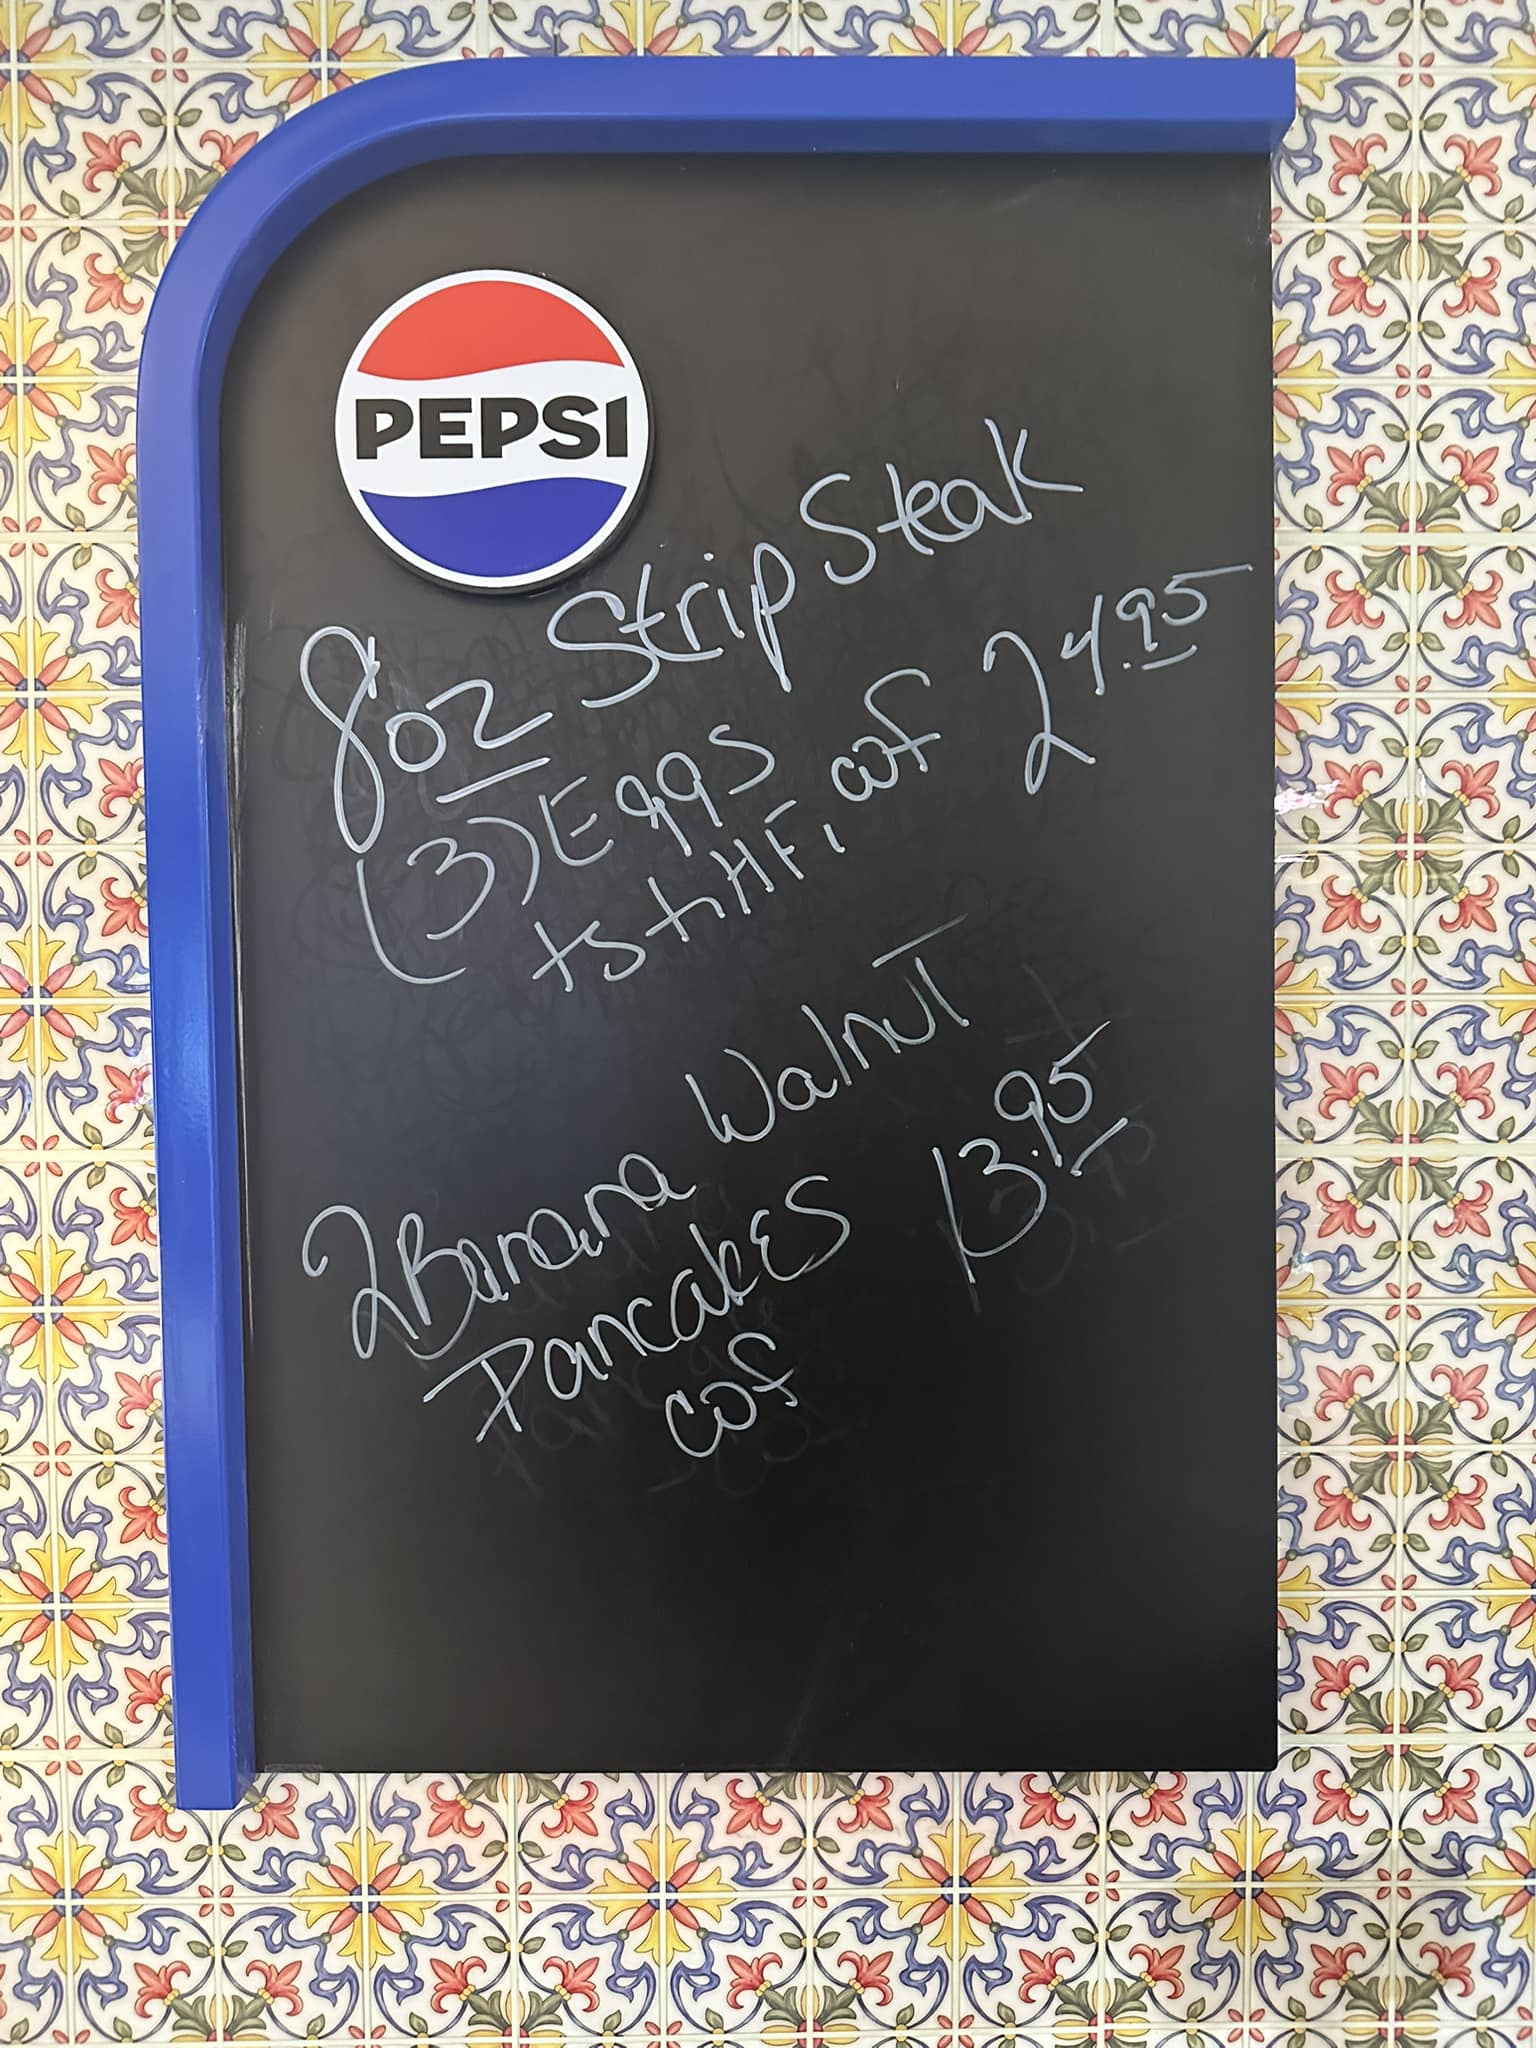 PEPSI
8oz Strip Steak
(3) Eggs
tst, HF, cof 24.95
2 Banana Walnut
PancakES 13.95
cof